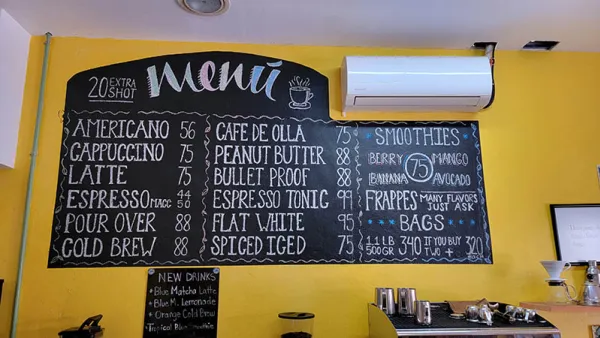 20 EXTRA SHOT
menú
AMERICANO 56
CAPPUCCINO 75
LATTE 75
ESPRESSO 44
MACC 50
POUR OVER 88
COLD BREW 88
CAFE DE OLLA 75
PEANUT BUTTER 88
BULLET PROOF 88
ESPRESSO TONIC 99
FLAT WHITE 95
SPICED ICED 75
SMOOTHIES
BERRY MANGO
75
BANANA AVOCADO
FRAPPES MANY FLAVORS
JUST ASK
BAGS
1.1 LB 340 IF YOU BUY 320
500GR TWO +
NEW DRINKS
Blue Matcha Latte
Blue M. Lemonade
Orange Cold Brew
Tropical Blue Smoothie